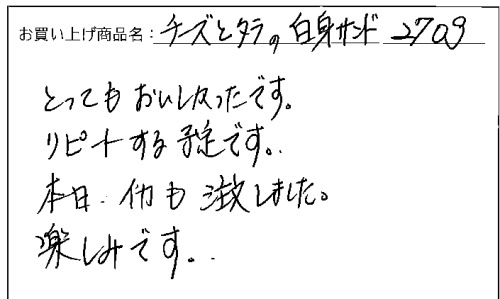 お買い上げ商品名：チーズとタラの白身サンド 270g
とってもおいしかったです。
リピートする予定です。
本日、他も注文しました。
楽しみです。